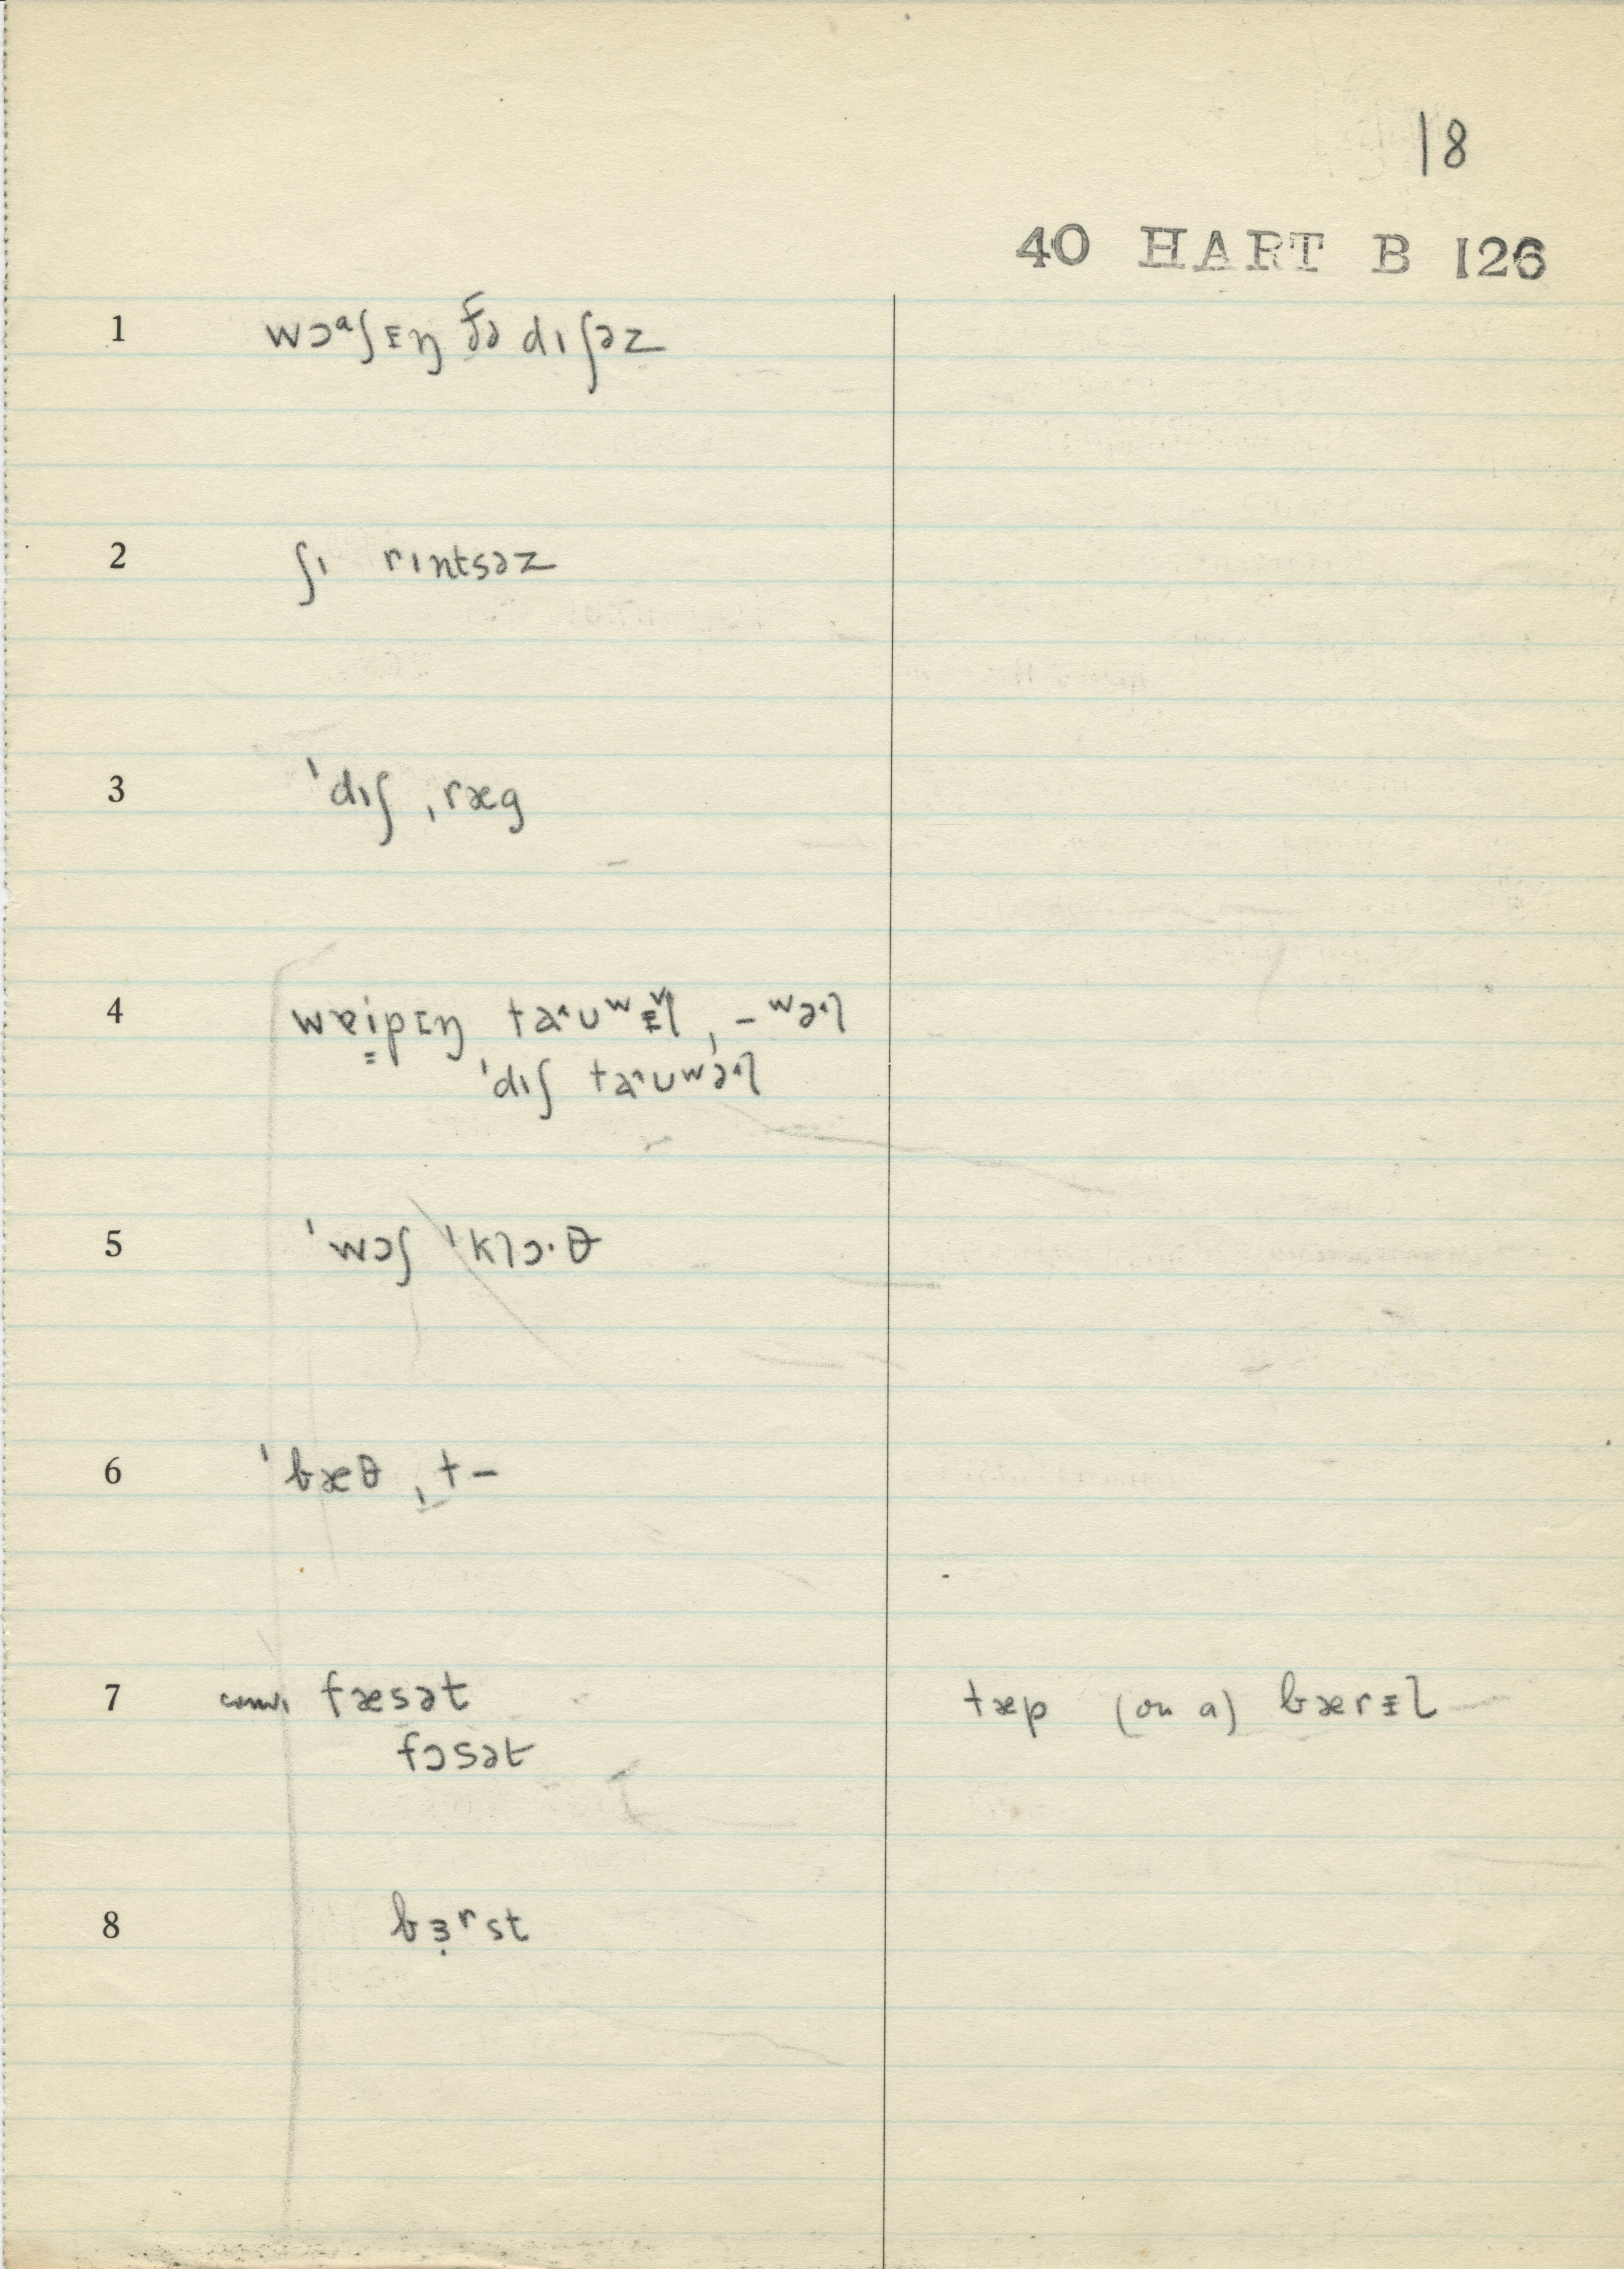 18
40 HART B 126
1 wɔᵃʃᵻŋ ðə dɪʃəz
2 ʃɪ rɪntsəz
3 ˈdɪʃ ˌræg
4 wɐipɪŋ ta˄ʊʷᵻl, -ʷə˄l
ˈdɪʃ ta˄ʊʷə˄l
5 ˈwɔʃ ˈklɔ·θ
6 ˈbæθ ˌt–
7 fæsət tæp (on a) bærᵻl
fɔsət
8 bɜ̣ʳst